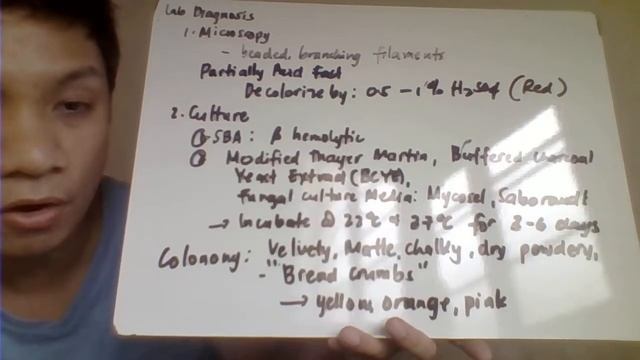 Lab Diagnosis
1. Microscopy
- beaded, branching filaments
Partially Acid Fast
Decolorize by: 0.5 - 1% H2SO4 (Red)
2. Culture
① SBA: β hemolytic
② Modified Thayer Martin, Buffered Charcoal
Yeast Extract (BCYE),
Fungal culture Media: Mycosel, Saboraudt
→ Incubate @ 22°C & 37°C for 3-6 days
Colonony: Velvety, Matte, chalky, dry powdery,
- "Bread crumbs"
→ yellow, orange, pink